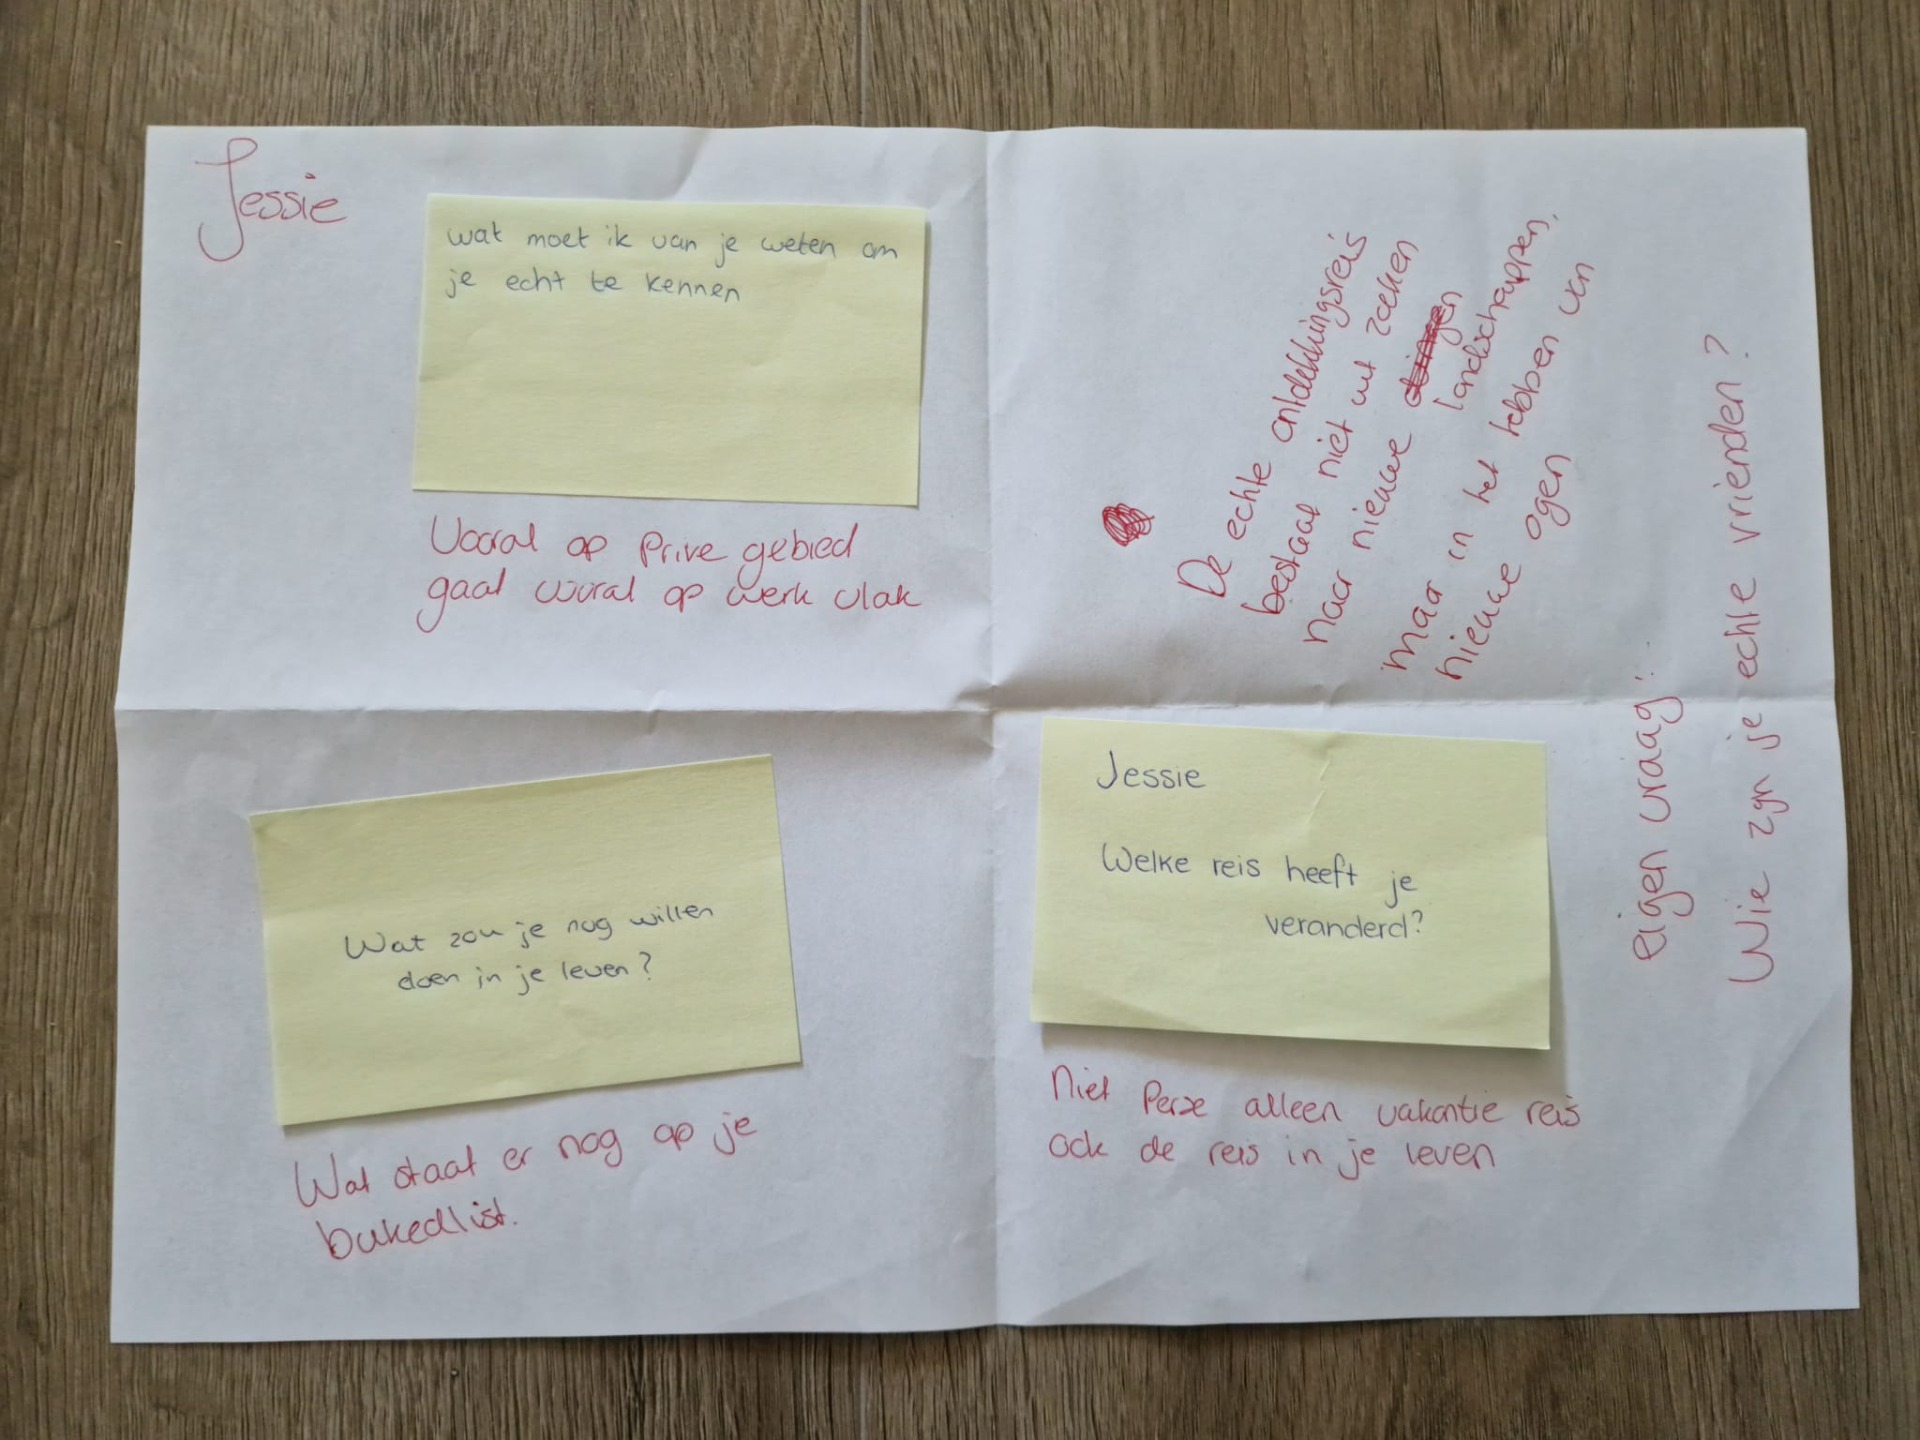 Jessie
wat moet ik van je weten om
je echt te kennen
Vooral op Prive gebied
gaat vooral op werk vlak
De echte ontdekkingsreis
bestaat niet uit zoeken
naar nieuwe
landschappen,
maar in het hebben van
nieuwe ogen
eigen vraag:
Wie zijn je echte vrienden?
Wat zou je nog willen
doen in je leven?
Wat staat er nog op je
bukedlist.
Jessie
Welke reis heeft je
veranderd?
Niet Perse alleen vakantie reis
ook de reis in je leven